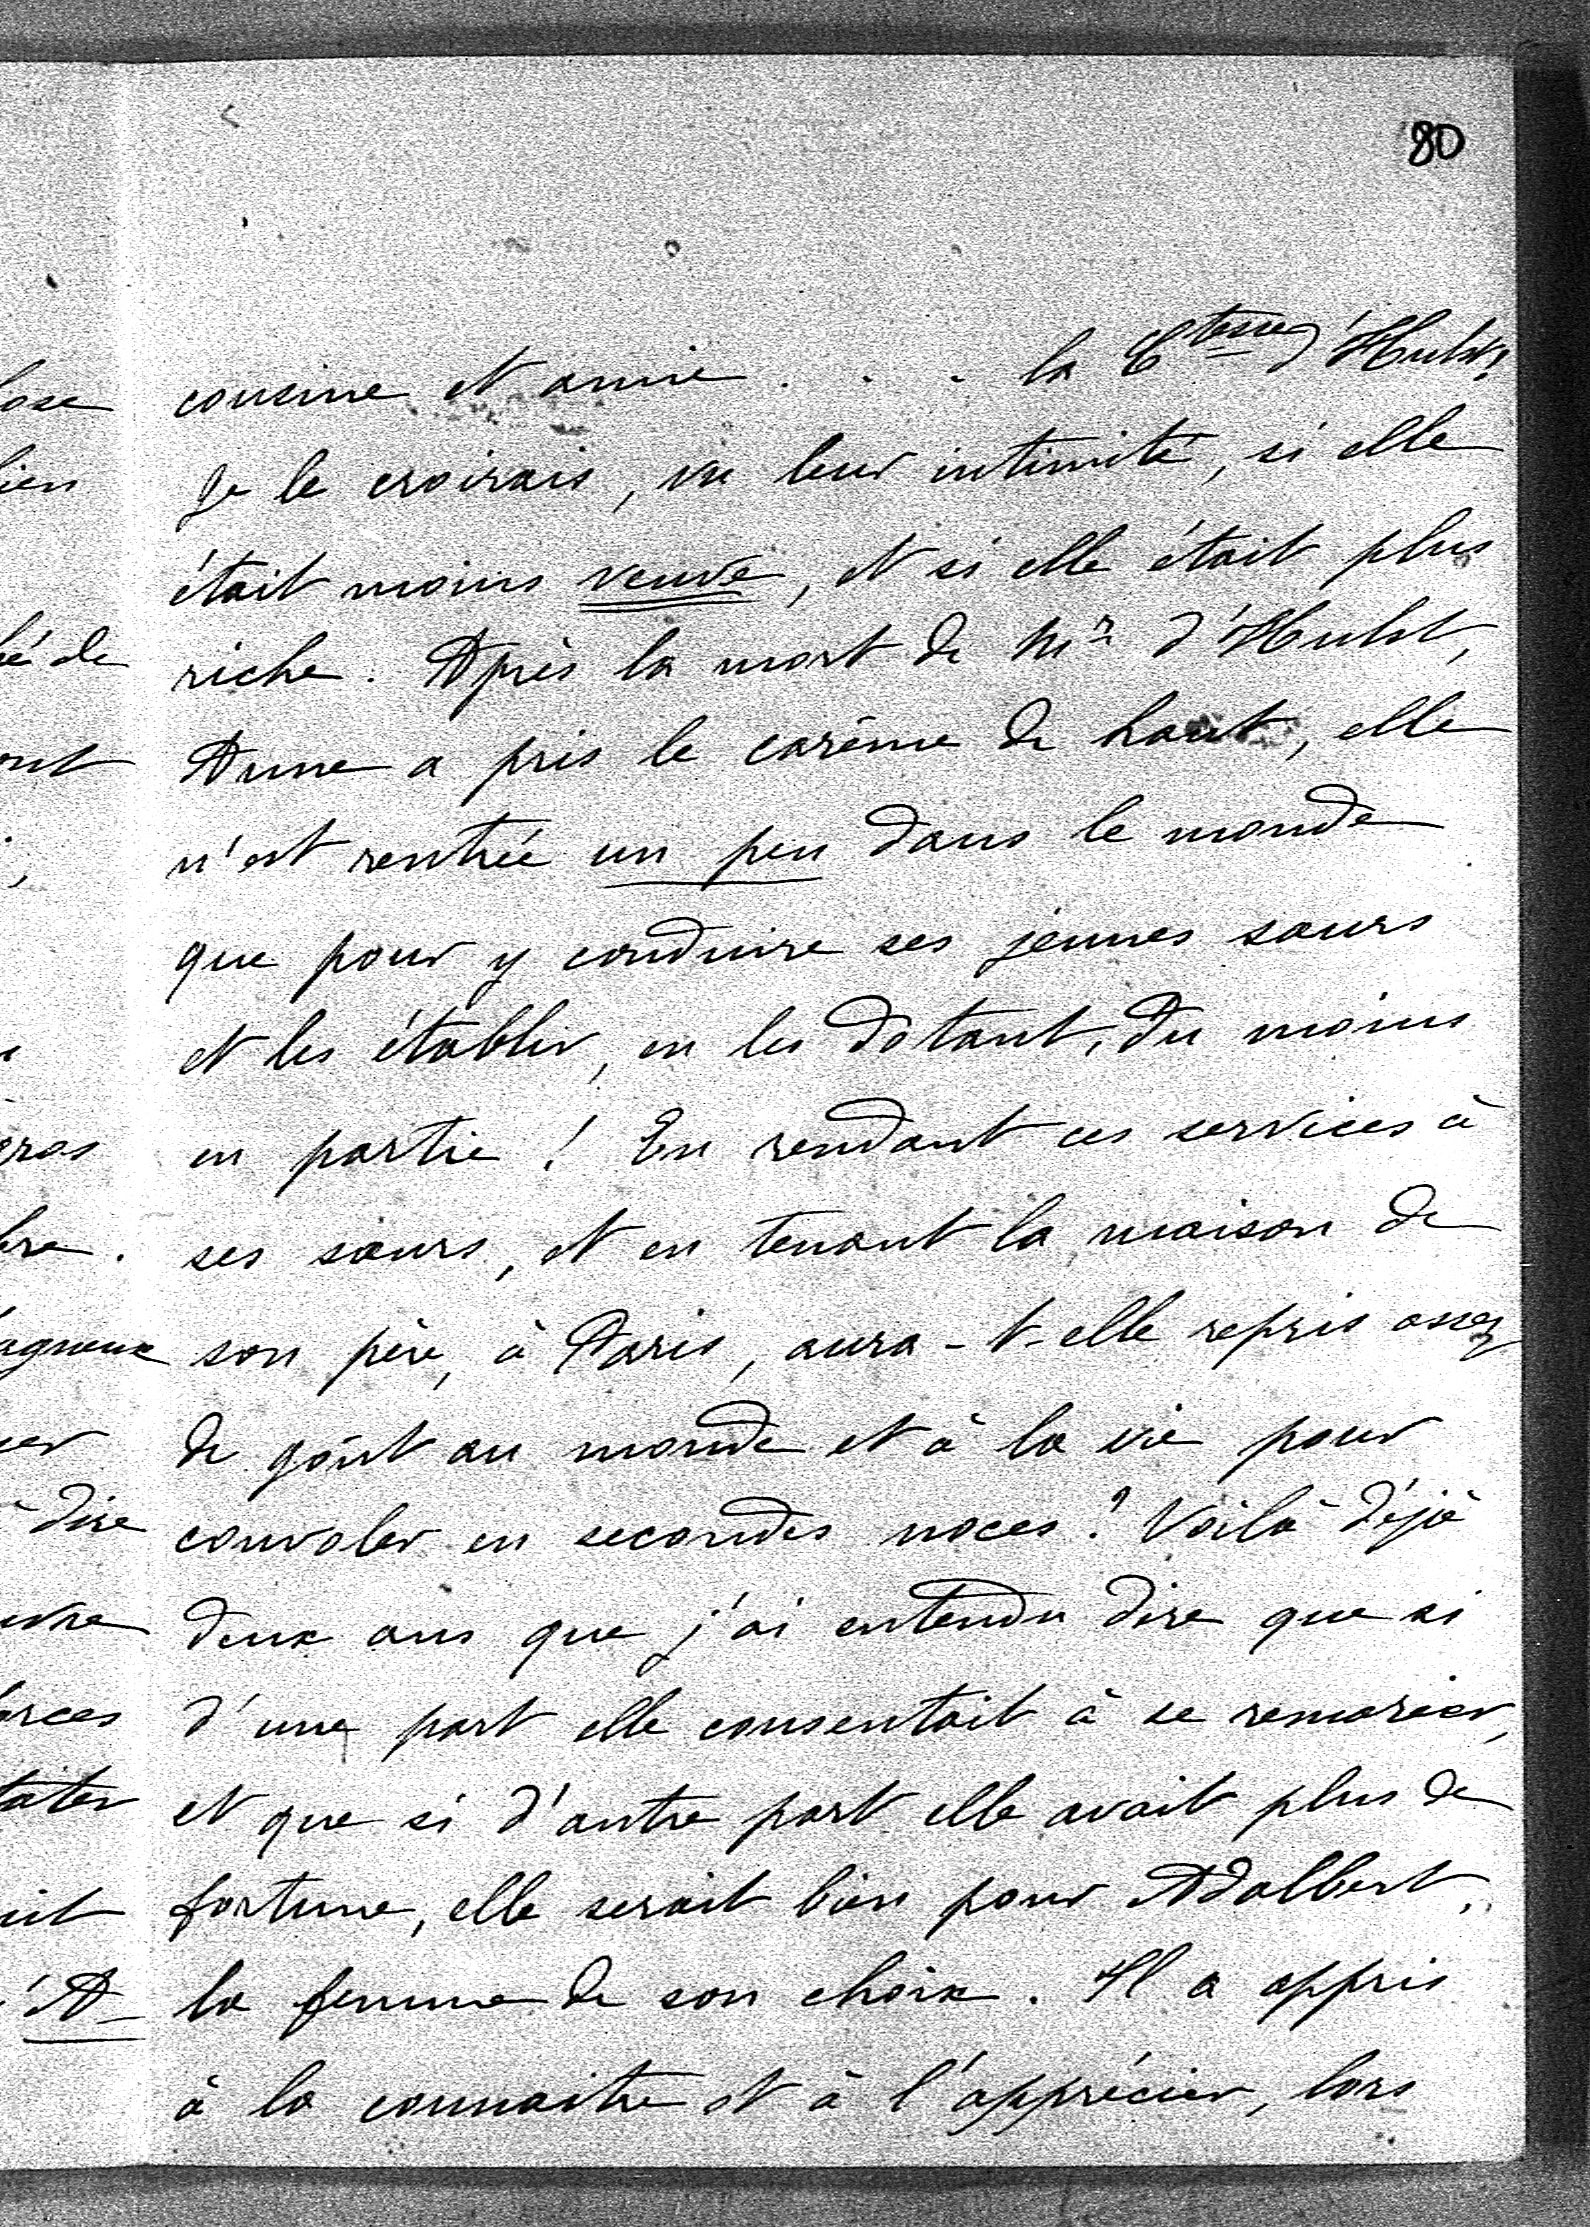 80
cousine et amie . . . la Ctesse d'Hulst?
Je le croirais, vu leur intimité, si elle
était moins veuve, et si elle était plus
riche. Après la mort de Mr d'Hulst,
Anne a pris le carême de haut, elle
n'est rentrée un peu dans le monde
que pour y conduire ses jeunes sœurs
et les établir, en les dotant, du moins
en partie ! En rendant ces services à
ses sœurs, et en tenant la maison de
son père, à Paris, aura-t-elle repris assez
de goût au monde et à la vie pour
convoler en secondes noces ? Voilà déjà
deux ans que j'ai entendu dire que si
d'une part elle consentait à se remarier,
et que si d'autre part elle avait plus de
fortune, elle serait bien pour Adalbert,
la femme de son choix. Il a appris
à la connaitre et à l'apprécier, lors